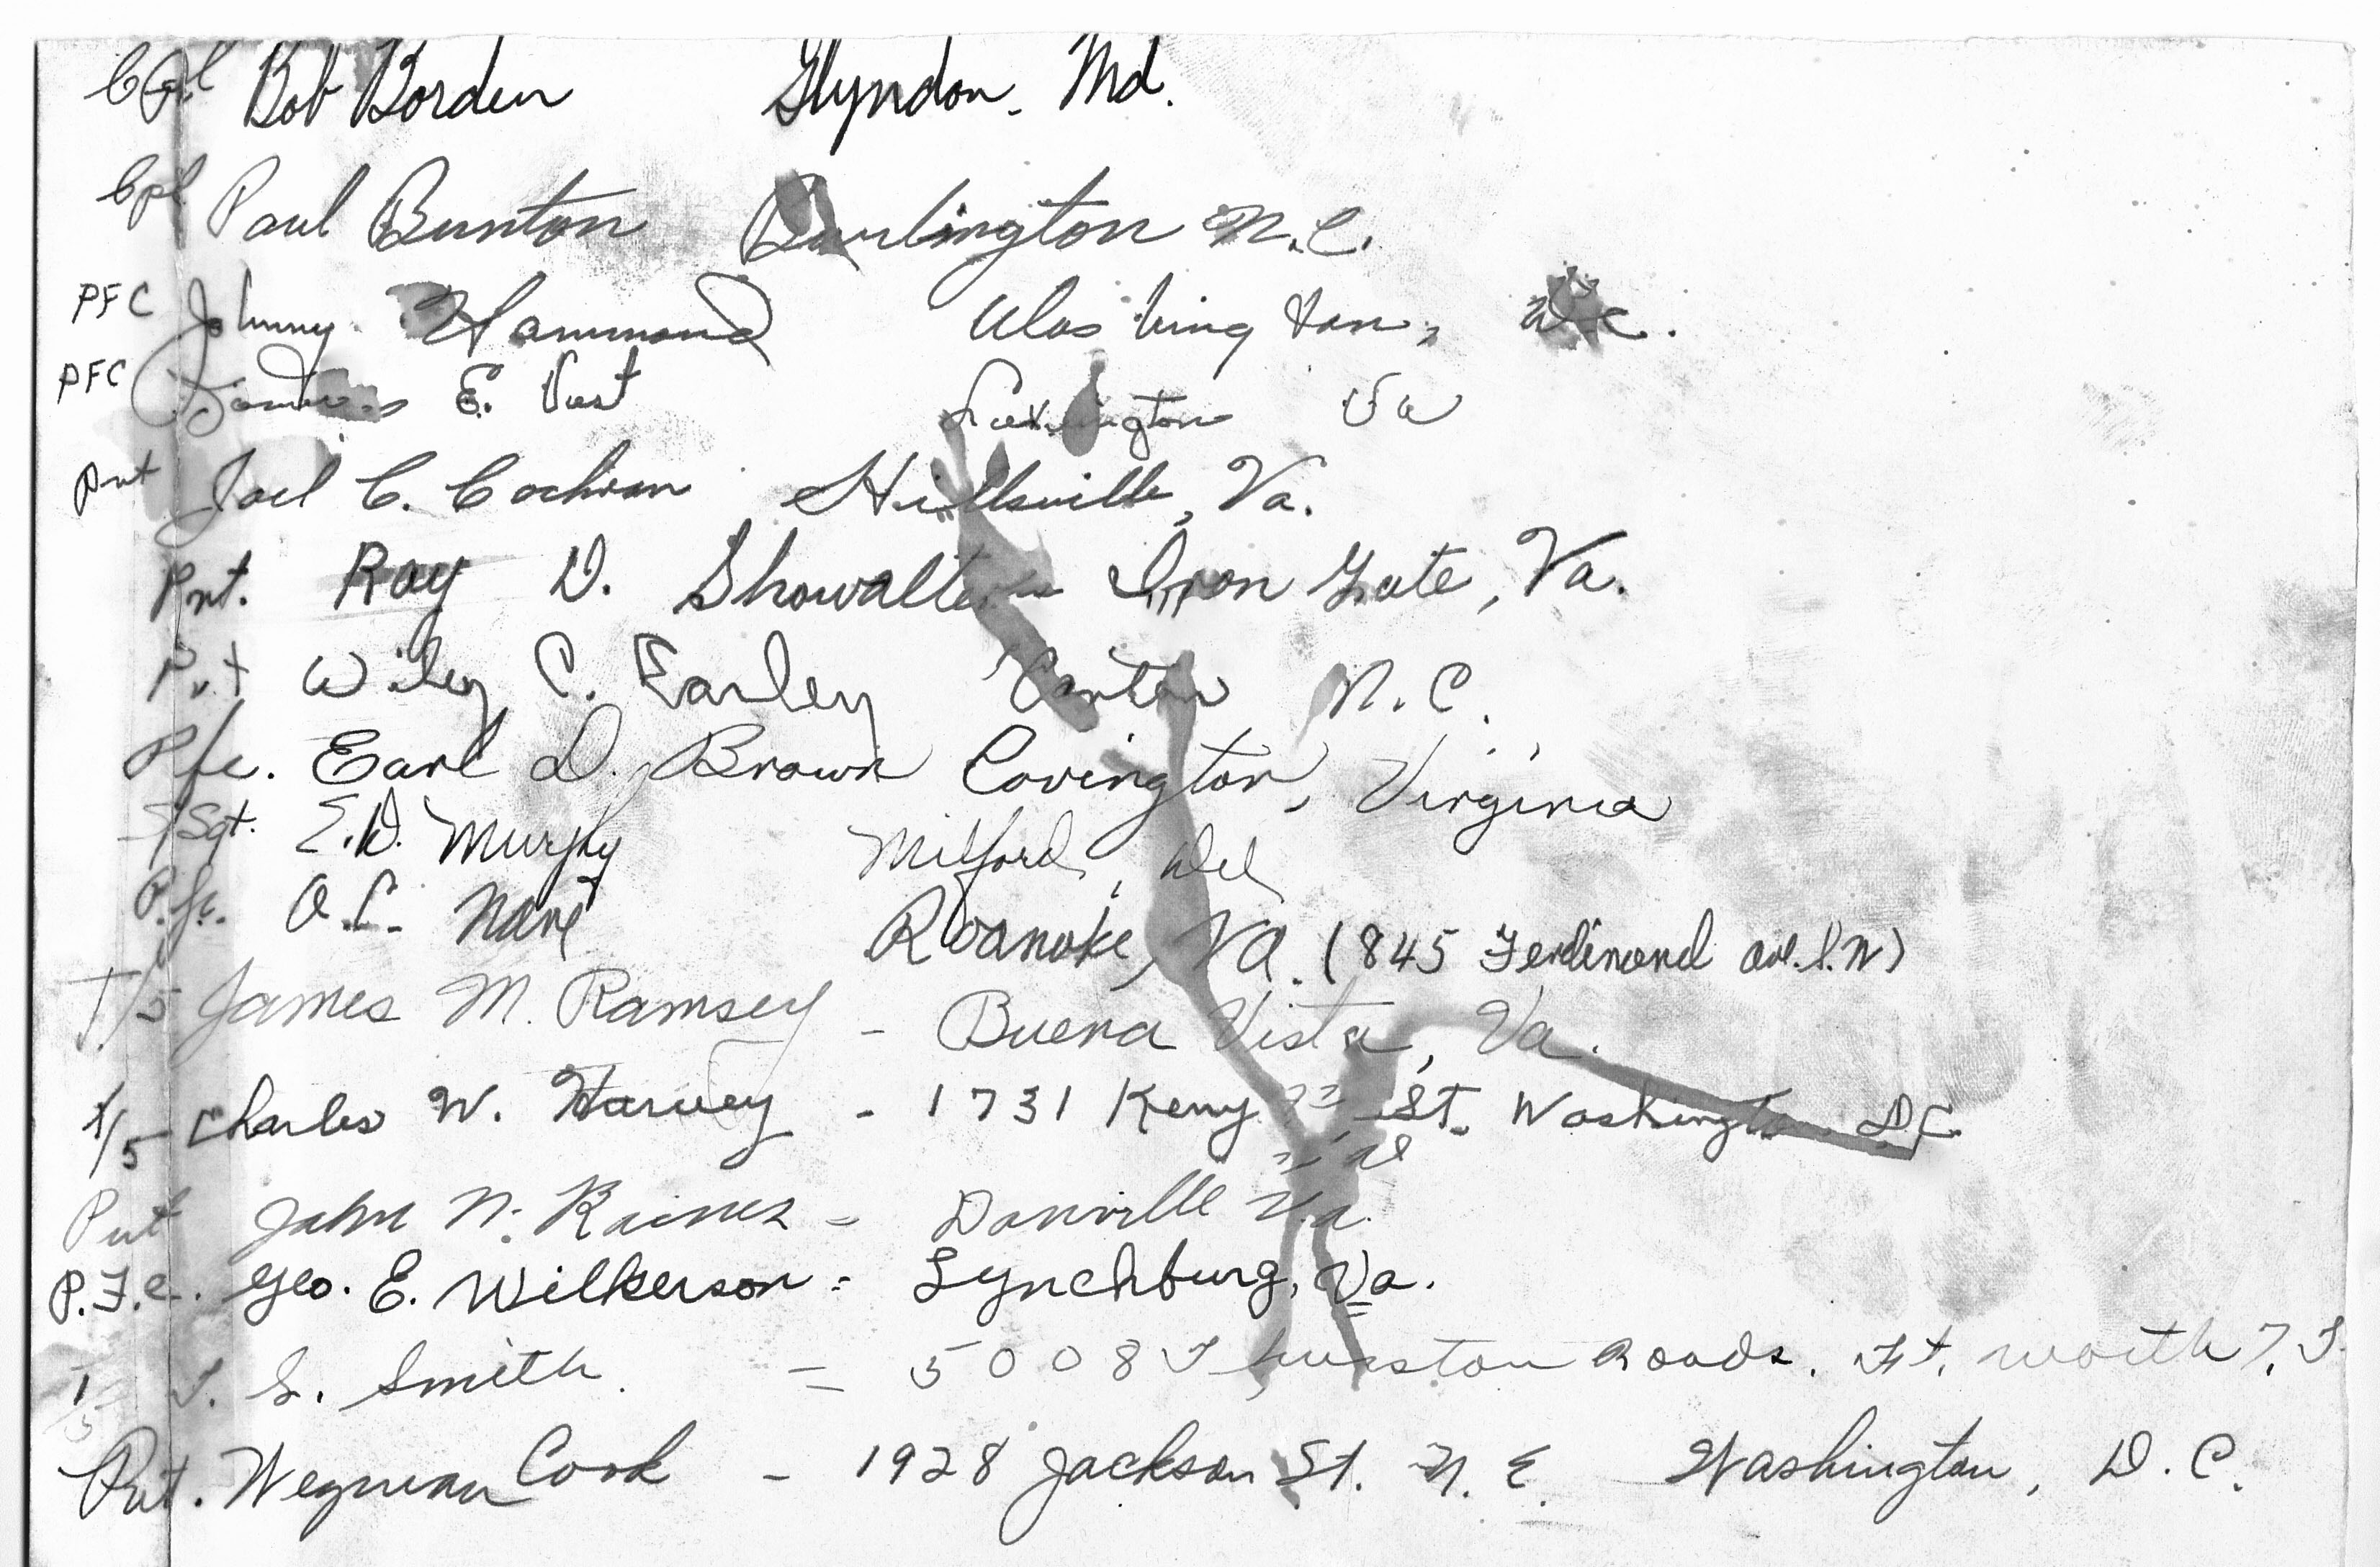 Cpl Bob Borden Glyndon, Md.
Cpl Paul Bunton Burlington N.C.
PFC Johnny Hammond Washington, D.C.
PFC E. Vest Lexington Va
Pvt Joel C. Cochran Hillsville, Va.
Pvt. Ray D. Showalter Iron Gate, Va.
Pvt Wiley C. Earley Canton N.C.
Pfc. Earl D. Brown Covington, Virginia
Sgt. E.D. Murphy Milford, Del
P.fc. O.C. Nave Roanoke, Va. (845 Ferdinand Ave. S.W)
T/5 James M. Ramsey - Buena Vista, Va.
T/5 Charles W. Harvey - 1731 St. Washington D.C.
Pvt John N. Raines - Danville Va.
P.F.C. Geo. E. Wilkerson - Lynchburg, Va.
T/5 Smith = 5008 Thurston Roads. Ft. Worth
Pvt. Cook - 1928 Jackson St. N.E. Washington, D.C.